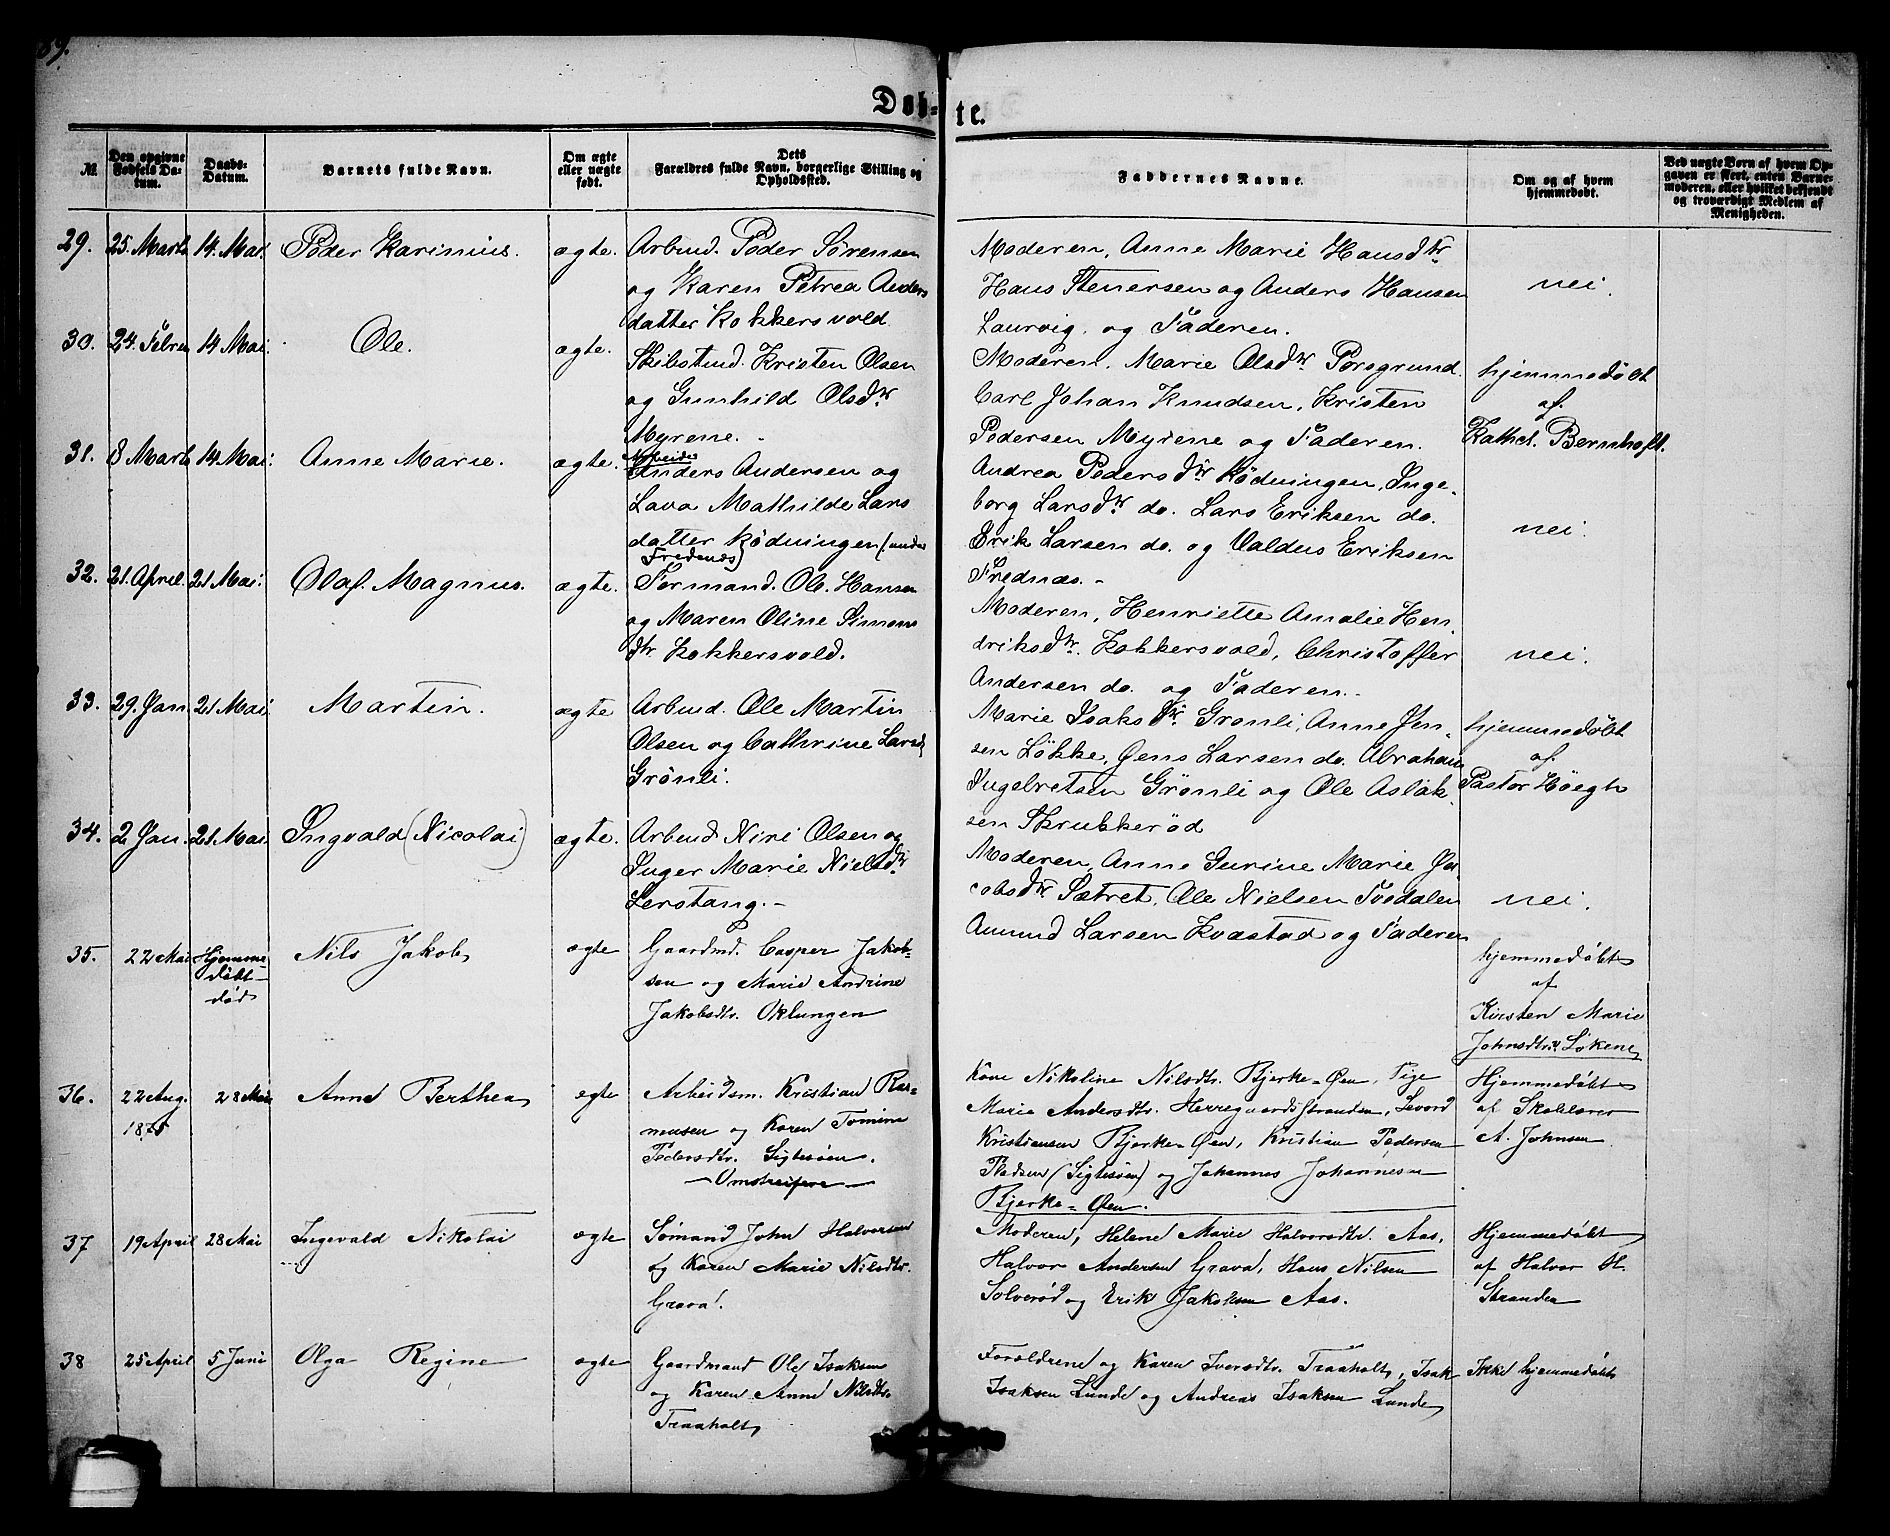 Døb-te.
№
Den opgivne Fødsels Datum.
Daabs-Datum.
Barnets fulde Navn.
Om ægte eller uægte født.
Dets Forældres fulde Navn, borgerlige Stilling og Opholdssted.
Faddernes Navne.
Om og af hvem hjemmedøbt.
Ved uægte Børn af hvem Opgaven er skeet, enten Barnemoderen, eller hvilket bekjendt og troværdigt Medlem af Menigheden.
29. 25. Marts 14. Mai. Peder Karinius. ægte.
Arbmd. Peder Sørensen
og Karen Petrea Anders
datter Kokkersvold
Moderen, Anne Marie Hansdtr
Hans Stenersen og Anders Hansen
Laurvig. og Faderen.
nei.
30. 24. Febru 14 Mai. Ole. ægte.
Skibstmd. Kristen Olsen
og Gunhild Olsdtr
Myrene. -
Moderen. Marie Olsdtr Porsgrund.
Carl Johan Knudsen, Kristen
Pedersen Myrene og Faderen.
hjemmedøbt
af.
Kathct. Bernhoft.
31. 8 Marts 14 Mai. Anne Marie. ægte.
Arbeider
Anders Andersen og
Lava Mathilde Lars
datter Kødningen (under
Frednæs)
Andrea Pedersdtr Kødningen, Inge-
borg Larsdtr do. Lars Eriksen do.
Erik Larsen do. og Valdus Eriksen
Frednæs. -
nei.
32. 21. April. 21 Mai. Olaf. Magnus. ægte.
Formand. Ole. Hansen
og Maren Oline Simons
dtr. Kokkersvold.
Moderen, Henriette Amalie Hen
driksdtr. Kokkersvold, Christoffer
Andersen do. og Faderen.-
nei.
33. 29. Jan. 21 Mai. Martin. ægte
Arbmd. Ole Martin
Olsen og Cathrine Larsd
Grønli.
Marie Isaksdtr. Grønli, Anne Jen-
sen Løkke, Jens Larsen do. Abraham
Ingebretsen Grønli og Ole Aslak-
sen Skrukkerød
hjemmedøbt
af.
Pastor Høegh
34. 2 Jan. 21 Mai. Ingvald (Nicolai) ægte.
Arbmd Niri Olsen og
Inger Marie Nielsdtr
Lerstang. -
Moderen, Anne Gurine Marie Ja-
cobsdtr Sætret, Ole Nielsen Tvedalen
Amund Larsen Kvæstad og Faderen
nei.
35. 22 Mai Hjemme-
døbt
død
Nils Jakob, ægte
Gaardmd. Casper Jakob-
sen og Marie Andrine
Jakobsdtr. Oklungen
hjemmedøbt
af
Kirsten Marie
Johnsdtr. Løkene
36. 22 Aug. 28 Mai Anne Berthea ægte
1875
Arbeidsm. Kristian Ras-
mussen og Karen Tomine
Pedersdtr. Sigtesøen.
— Omstreifere —
Kone Nikoline Nilsdtr. Bjerke-Øen, Pige
Marie Andersdtr. Herregaardsstranden, Levord
Kristiansen Bjerke-Øen, Kristian Pedersen
Pladsen (Sigtesøen) og Johannes Johannesen
Bjerke-Øen.
Hjemmedøbt
af Skolelærer
A. Johnsen.
37 19 April 28 Mai Ingevald Nikolai ægte
Sømand John Halvorsen
og Karen Marie Nilsdtr.
Grava.
Moderen, Helene Marie Halvorsdtr. Aas,
Halvor Andersen Grava, Hans Nilsen
Solverød og Erik Jakobsen Aas.
Hjemmedøbt
af Halvor H.
Stranden
38 25 April 5 Juni Olga Regine ægte
Gaardmand Ole Isaksen
og Karen Anne Nilsdtr.
Traaholt
Forældrene og Karen Iversdtr. Traaholt, Isak
Isaksen Lunde og Andreas Isaksen Lunde
Ikke hjemmedøbt